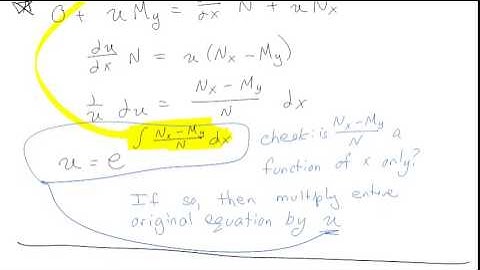 0 + u My = du/dx N + u Nx
du/dx N = u (Nx - My)
1/u du = (Nx - My)/N dx
u = e^∫ (Nx - My)/N dx
check: is (Nx - My)/N a
function of x only?
If so, then multiply entire
original equation by u